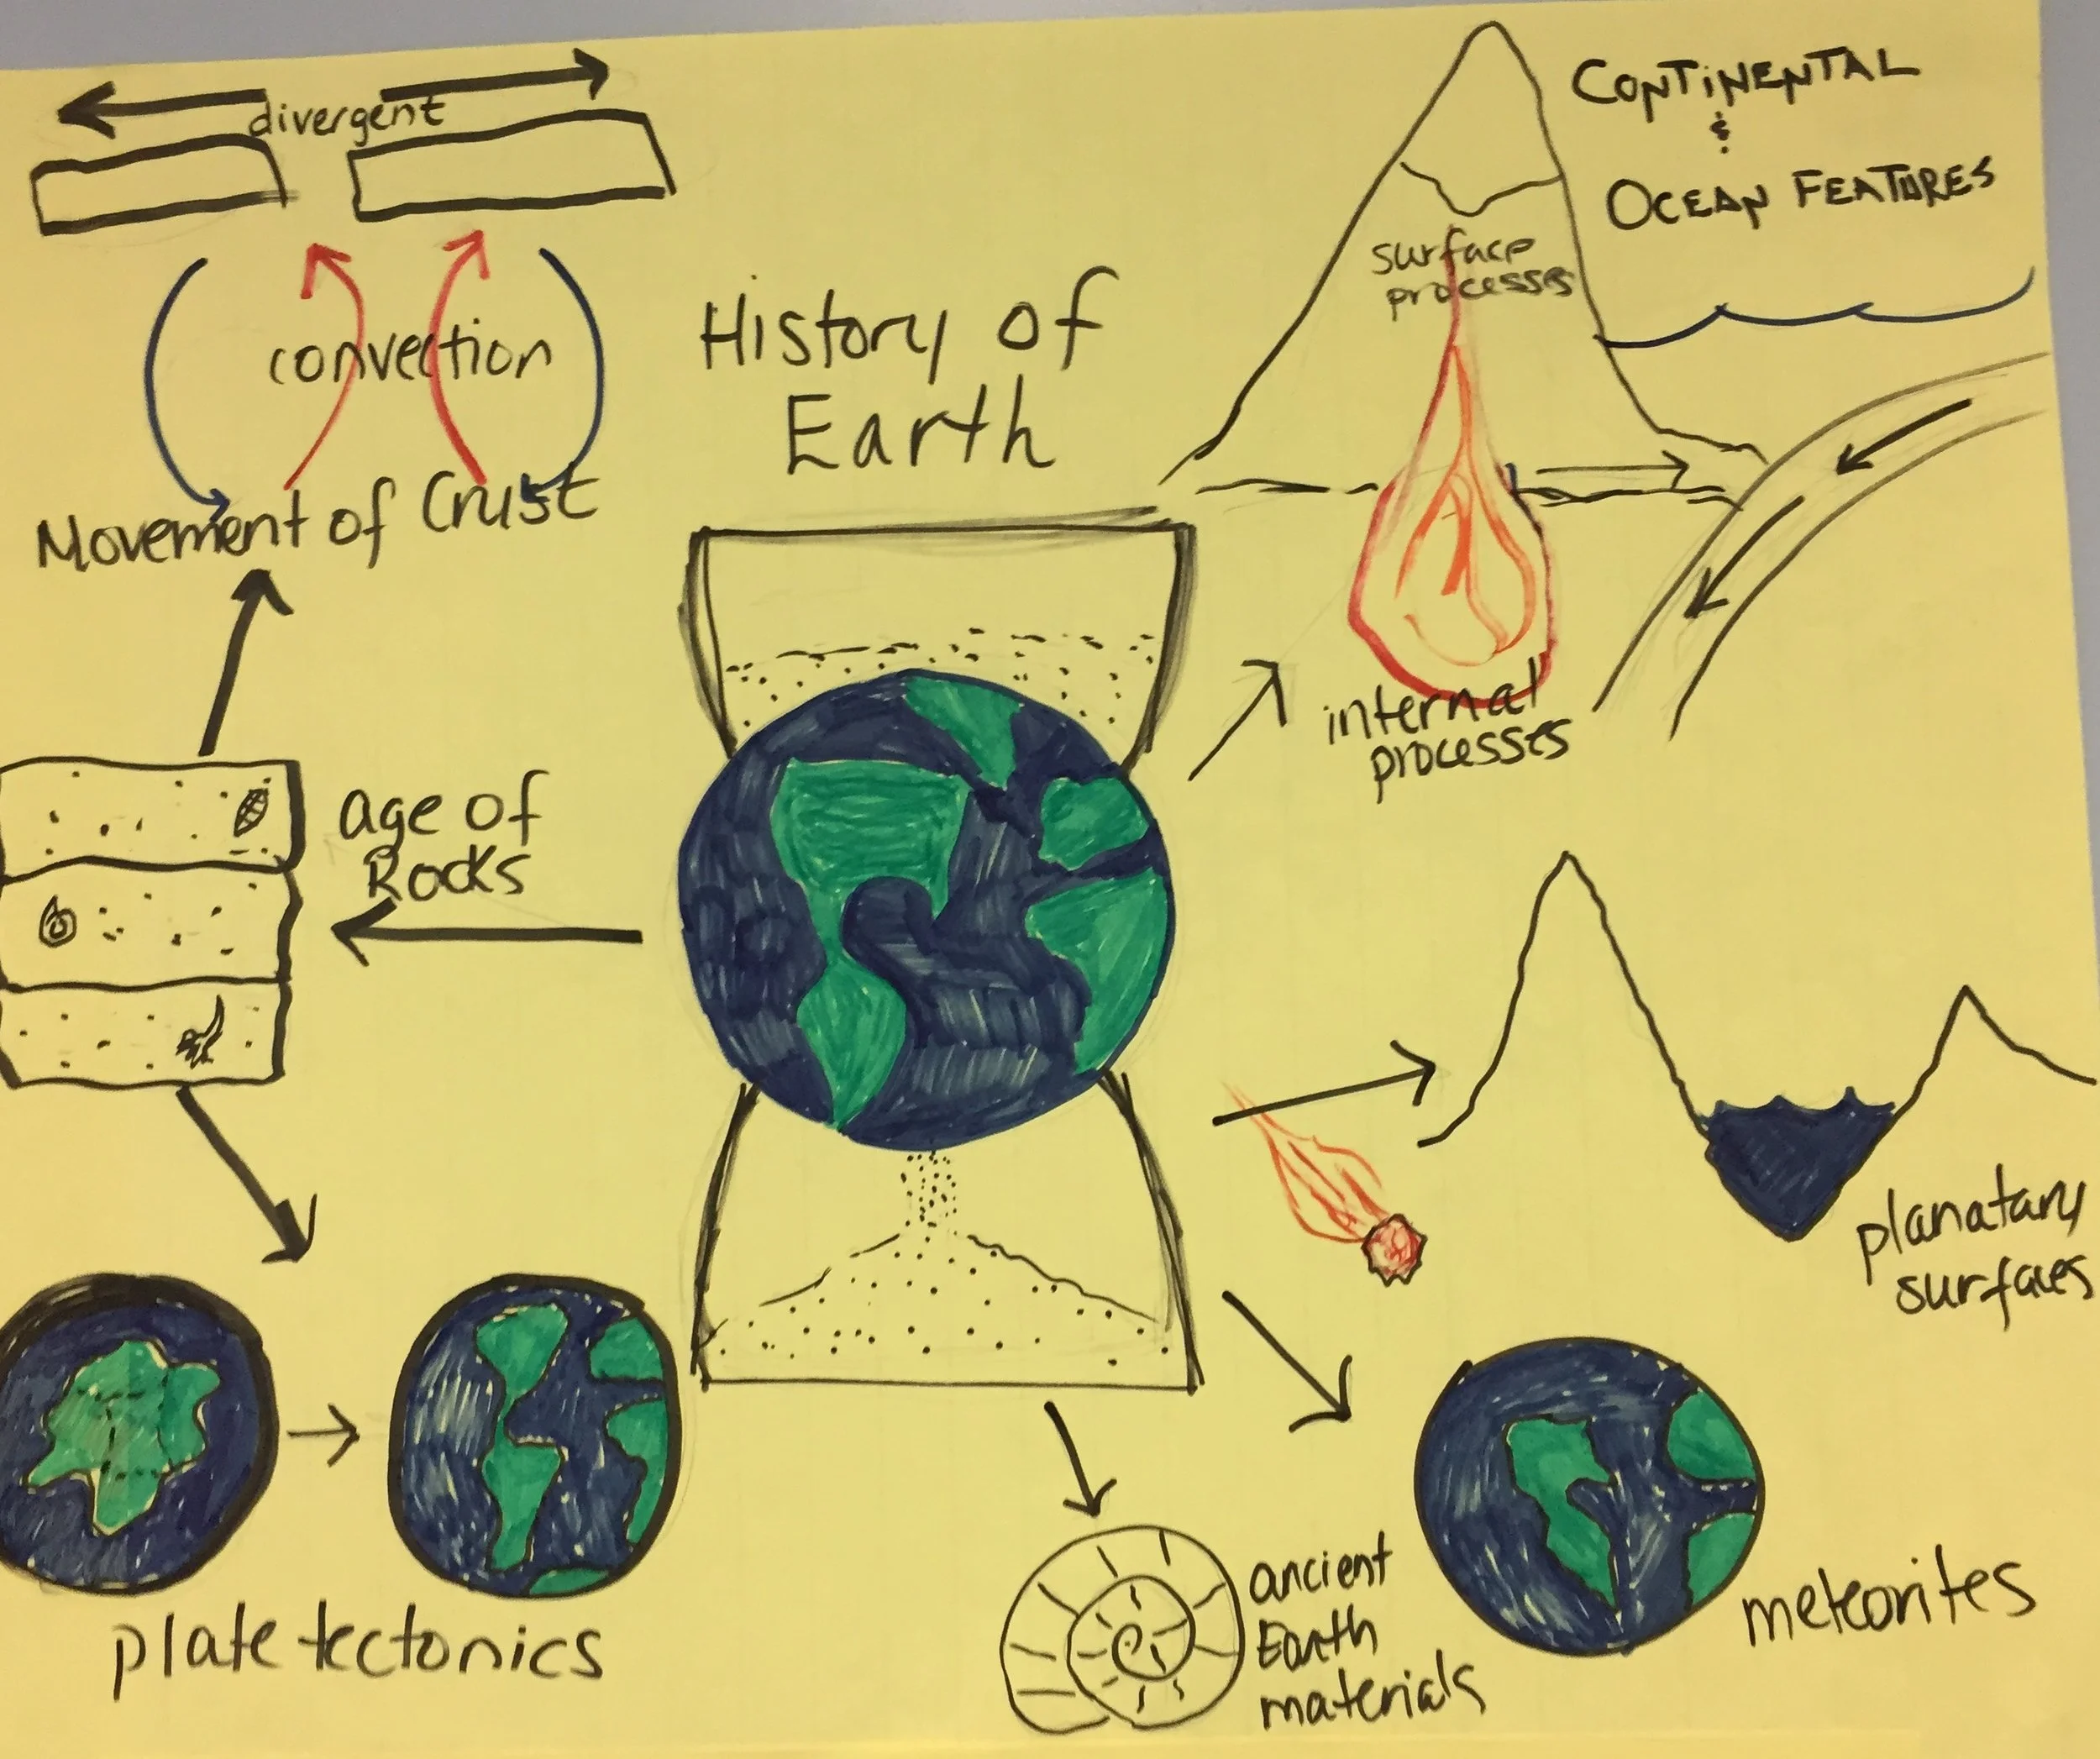 divergent
convection
Movement of Crust
History of
Earth
CONTINENTAL
&
OCEAN FEATURES
surface
processes
internal
processes
age of
Rocks
planatary
surfaces
plate tectonics
ancient
Earth
materials
meteorites